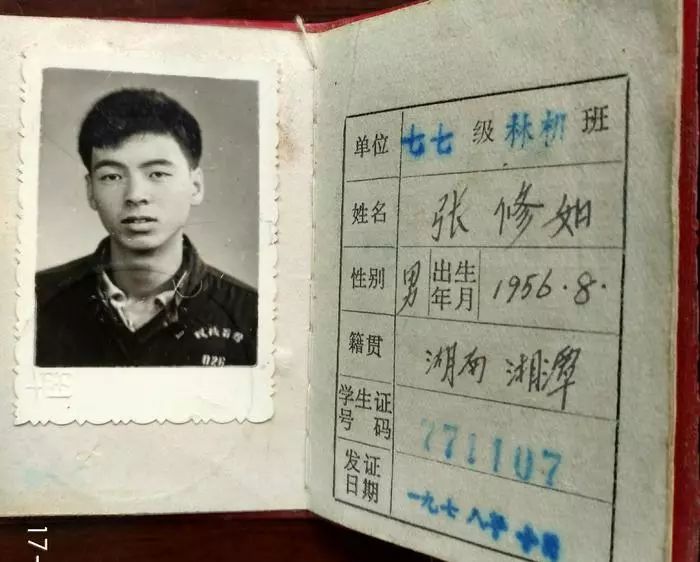 026
单位 七七 级 林机 班
姓名 张修如
性别 男 出生年月 1956.8.
籍贯 湖南 湘潭
学生证号码 771107
发证日期 一九七八年
17